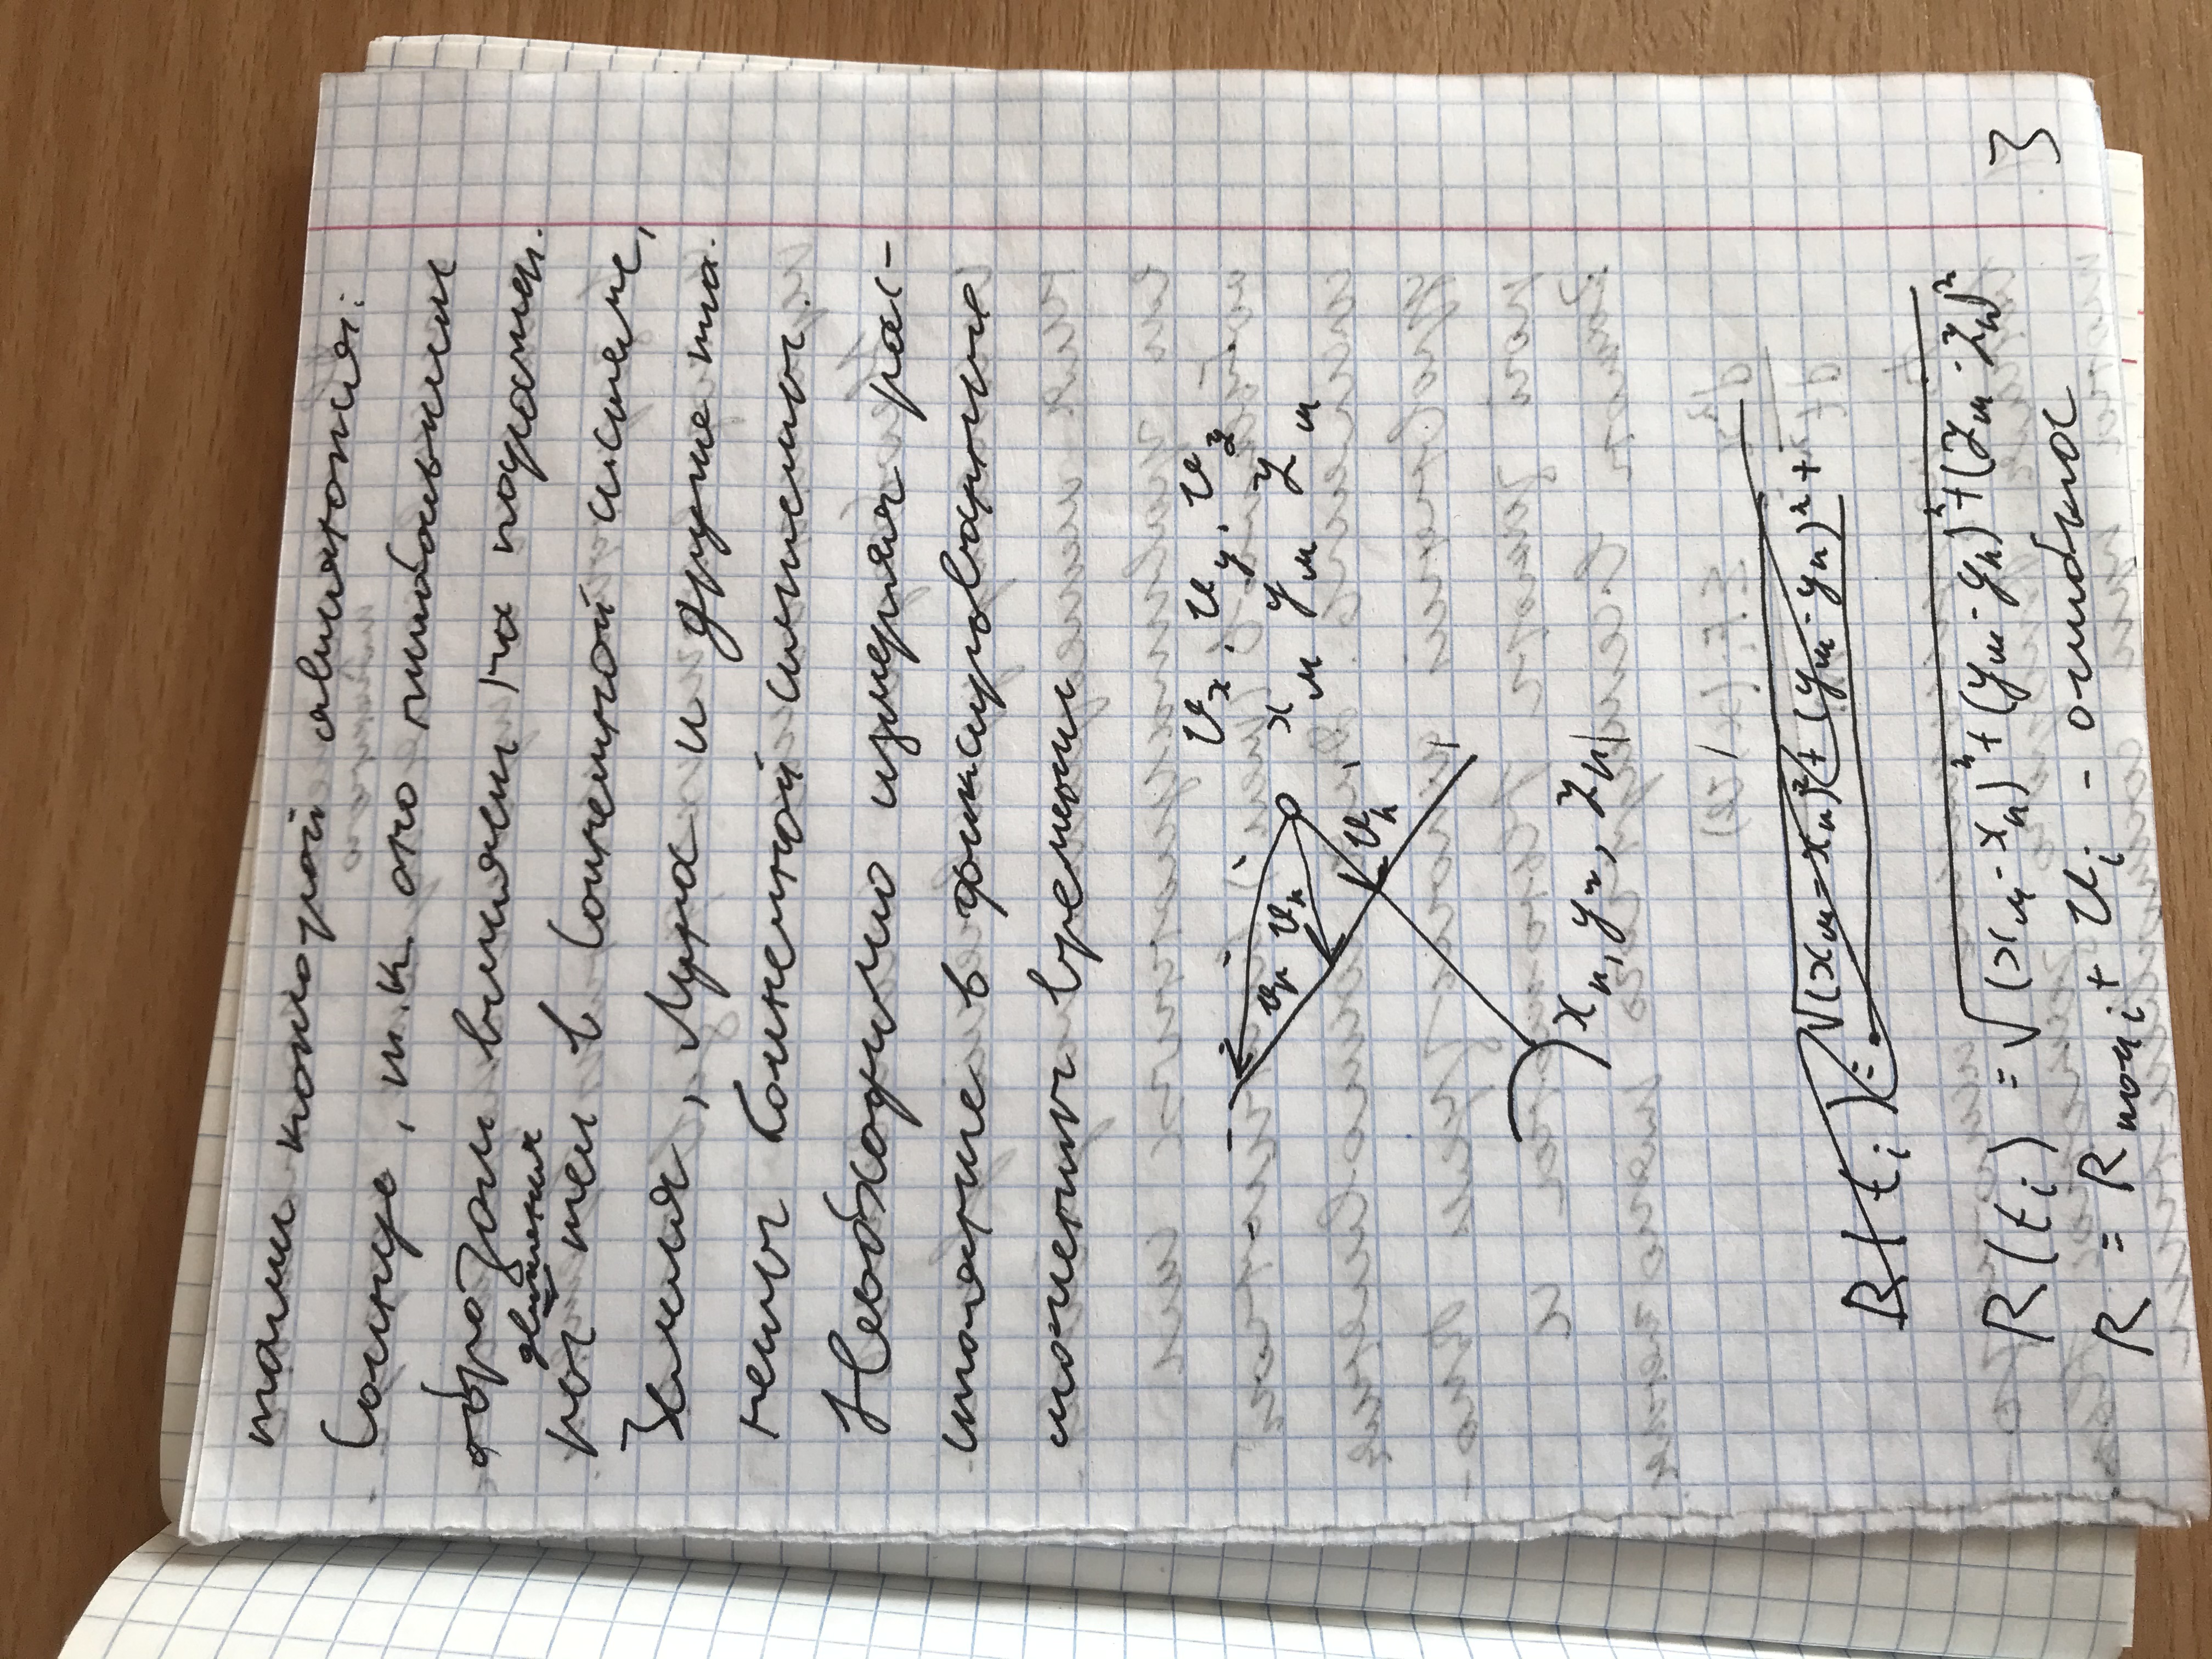 тами которой являются:
Солнце, т.к. оно наибольшим
образом влияет на парамет.
движения
ры тел в Солнечной системе,
Земля, Луна и другие пла.
неты Солнечной системы.
Необходимо измеряя рас-
стояние в фиксированные
моменты времени
Vx, Vy, Vz
xм yм zм
Vr Vn
Vn
xn, yn, zn
R(ti) = √(xм - xn)² + (yм - yn)² +
R(ti) = √(xм - xn)² + (yм - yn)² + (zм - zn)²
3
R = Rточi + Vi - ошибка